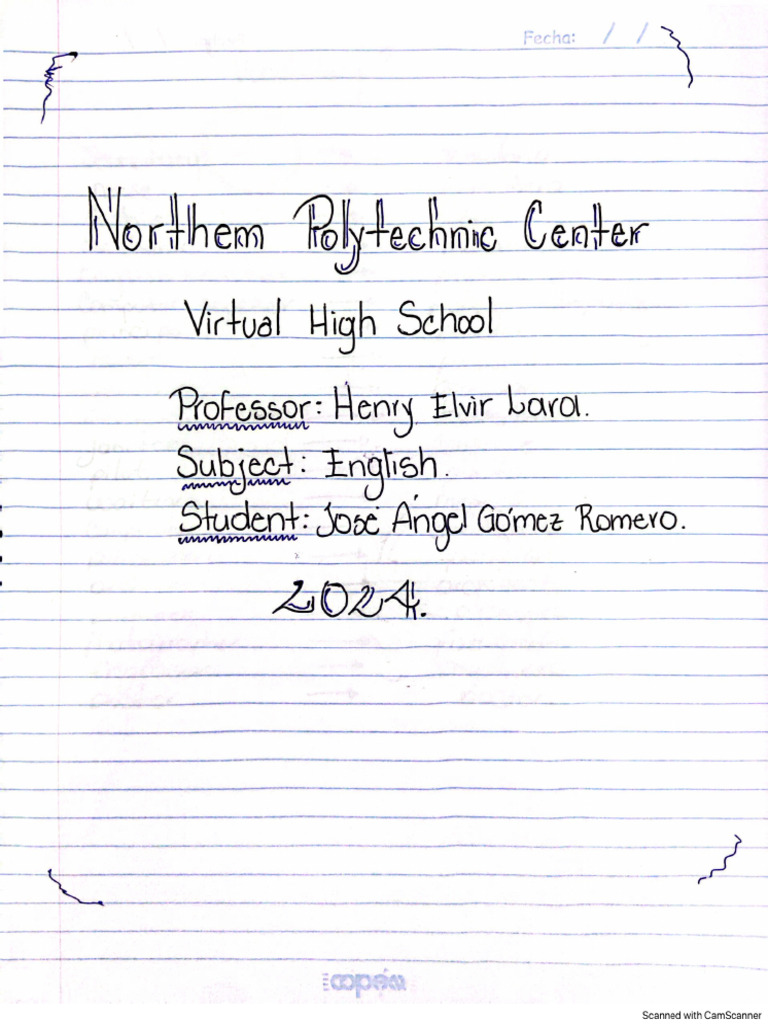 Fecha: / /
Northern Polytechnic Center
Virtual High School
Professor: Henry Elvir Lara.
Subject: English.
Student: José Ángel Gómez Romero.
2024.
Scanned with CamScanner